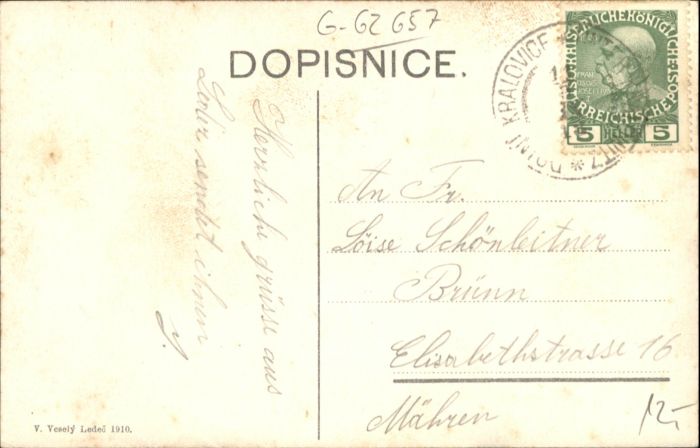 G-62 657
DOPISNICE.
KAISERLICHE KÖNIGLICHE
ÖSTERREICHISCHE
FRANZ
JOSEF I
5 5
DOLNÍ KRALOVICE
Herzliche grüsse aus
sendet ihnen
An Fr.
Löise Schönleitner
Brünn
Elisabethstrasse 16
Mähren
V. Veselý Ledeč 1910.
12,-